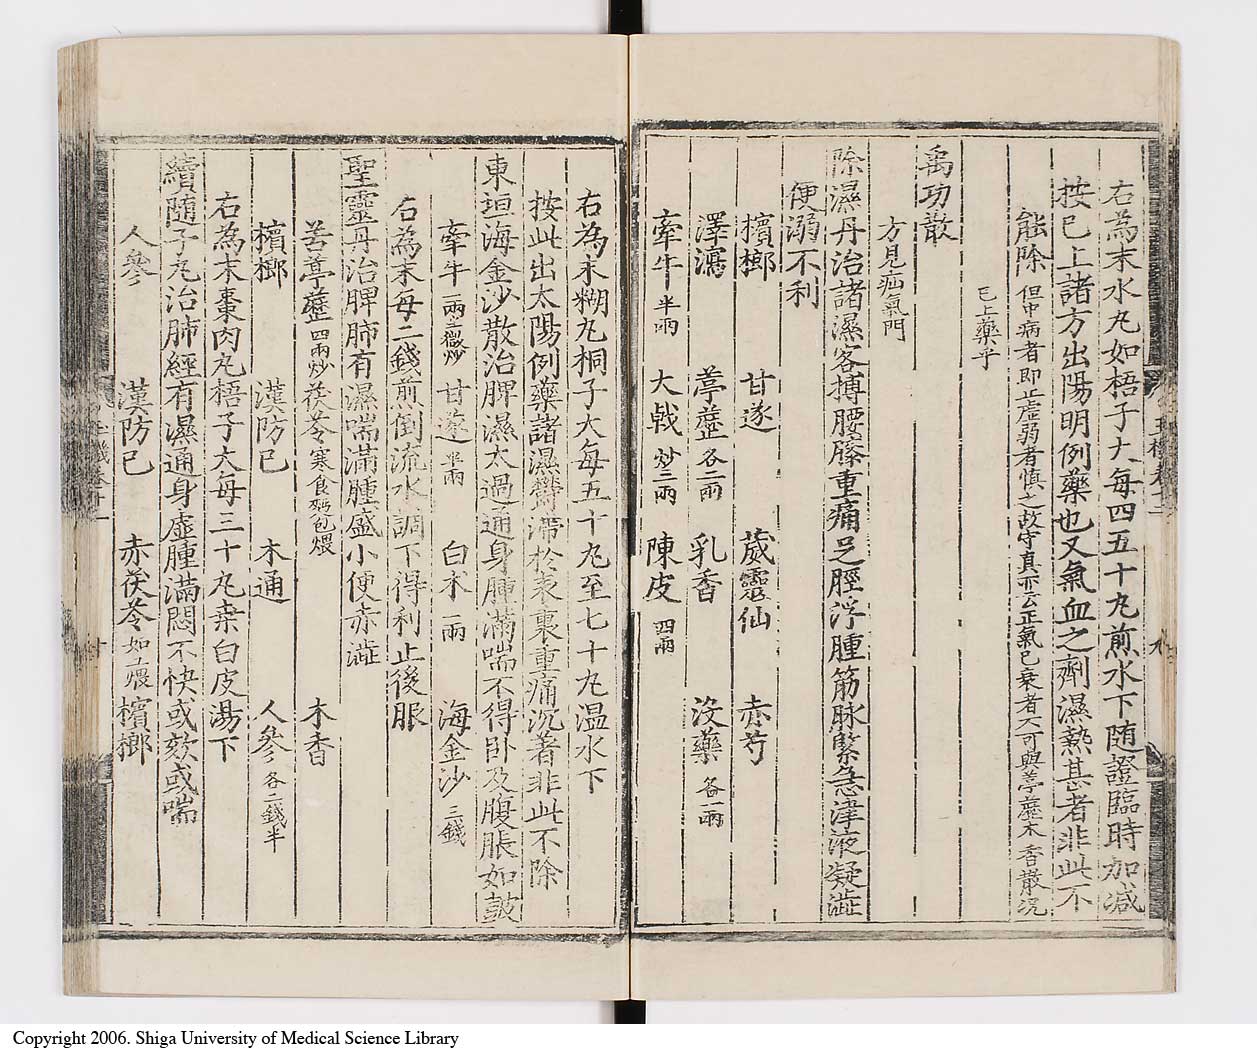 右為末水丸如梧子大每四五十丸煎水下隨證臨時加減
按已上諸方出陽明例藥也又氣血之劑濕熱甚者非此不
能除但中病者即止虛弱者慎之故守真亦云正氣已衰者不可與葶藶木香散况
已上藥乎
禹功散
方見疝氣門
除濕丹治諸濕客搏腰膝重痛足脛浮腫筋脉緊急津液凝澁
便溺不利
檳榔 甘遂 葳靈仙 赤芍
澤瀉 葶藶各二兩 乳香 没藥各一兩
牽牛半兩 大戟炒三兩 陳皮四兩
右為末糊丸桐子大每五十丸至七十丸温水下
按此出太陽例藥諸濕鬱滯於表裏重痛沉著非此不除
東垣海金沙散治脾濕太過通身腫滿喘不得卧及腹脹如皷
牽牛一兩三微炒 甘遂半兩 白术一兩 海金沙三錢
右為末每二錢煎倒流水調下得利止後服
聖靈丹治脾肺有濕喘滿腫盛小便赤澁
苦葶藶四兩炒 茯苓寒食麪包煨 木香
檳榔 漢防已 木通 人參各二錢半
右為末棗肉丸梧子大每三十丸桒白皮湯下
續隨子丸治肺經有濕通身虛腫滿悶不快或欬或喘
人參 漢防已 赤茯苓如上煨 檳榔
玉機卷十一
Copyright 2006. Shiga University of Medical Science Library